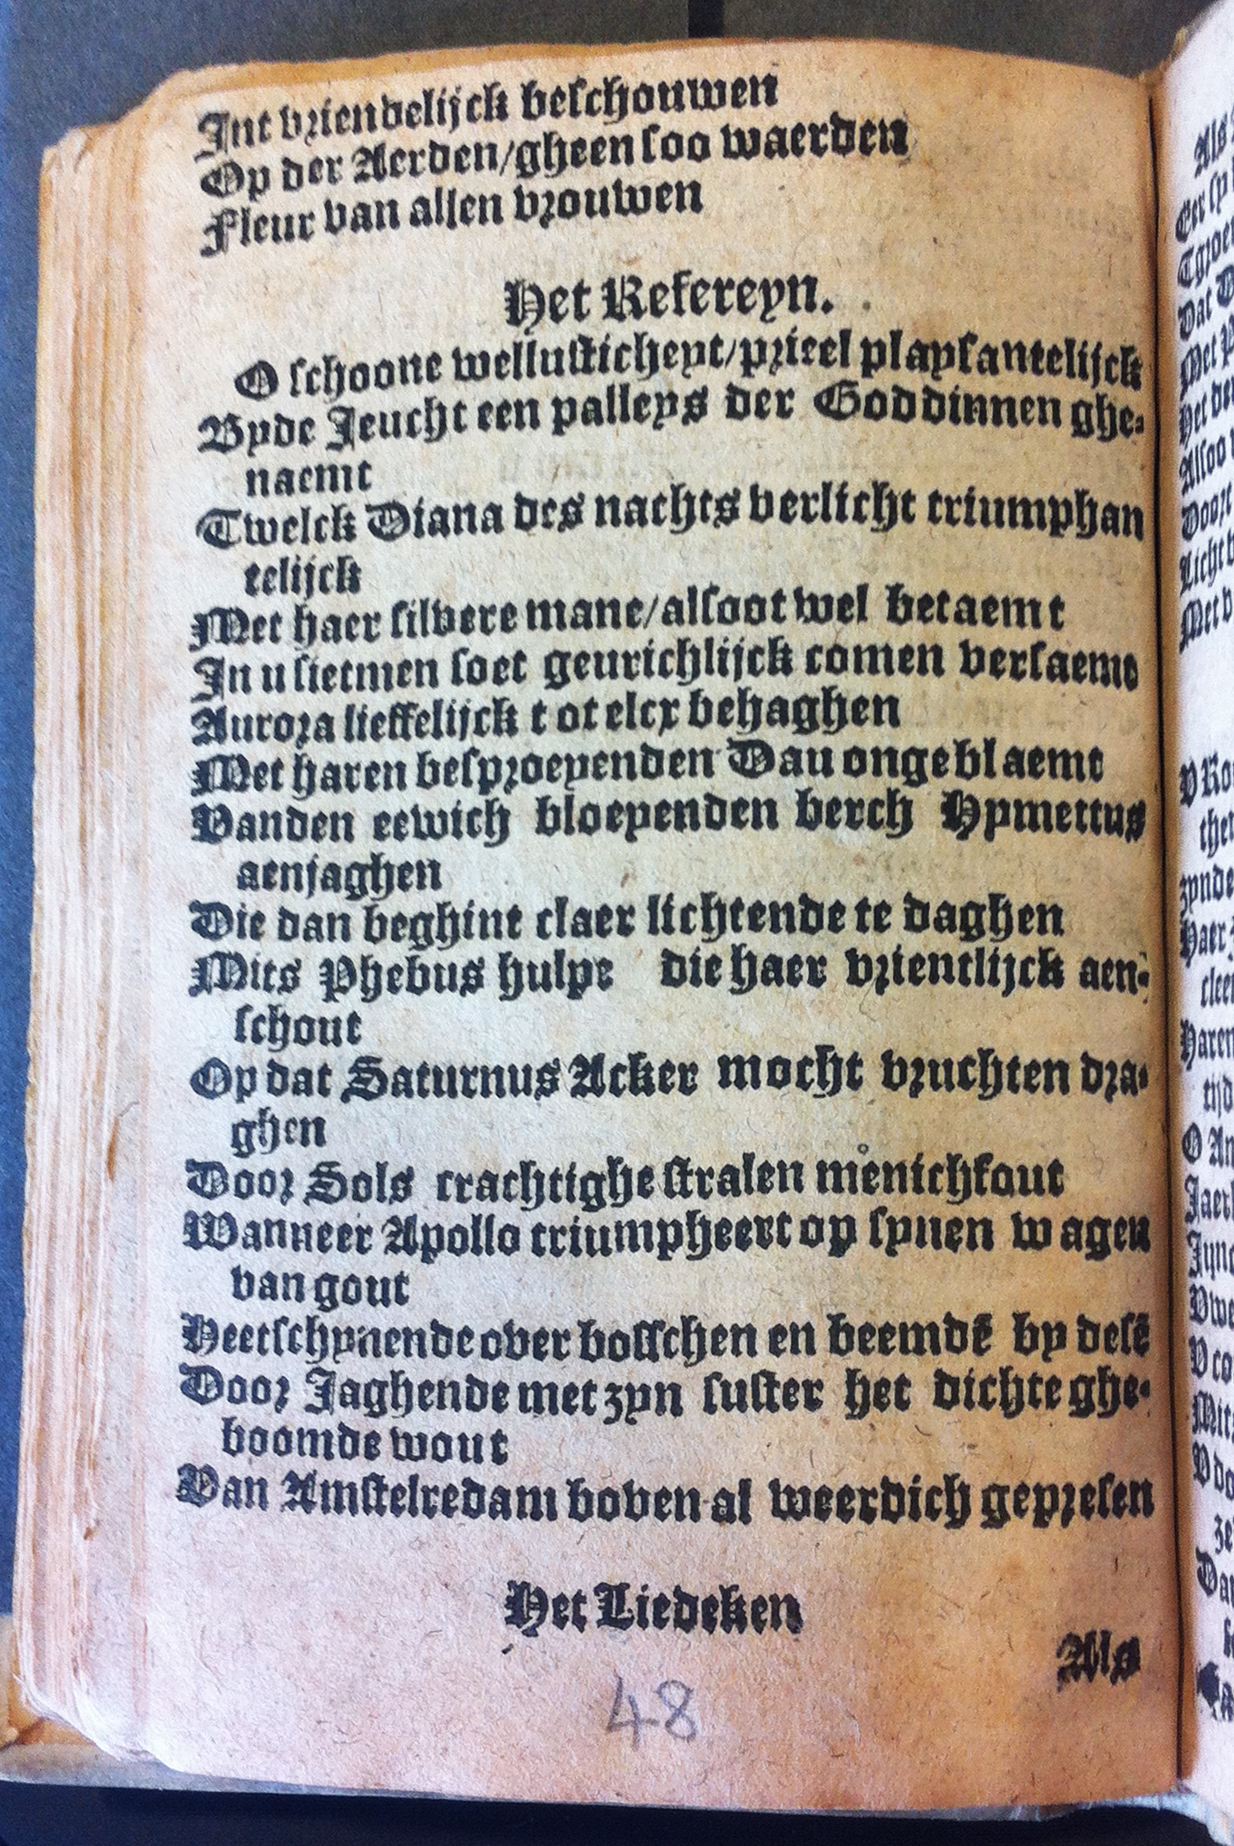 Int vriendelijck beschouwen
Op der Aerden/gheen soo waerden
Fleur van allen vrouwen
Het Refereyn.
O schoone wellusticheyt/prieel playsantelijck
Byde Jeucht een palleys der Goddinnen ghe-
naemt
Twelck Diana des nachts verlicht triumphan
telijck
Met haer silvere mane/alsoot wel betaemt
In u sietmen soet geurichlijck comen versaemt
Aurora lieffelijck tot elcx behaghen
Met haren besproeyenden Dau ongeblaemt
Vanden eewich bloeyenden berch Hymettus
aenjaghen
Die dan beghint claer lichtende te daghen
Mits Phebus hulpe die haer vrientlijck aen-
schout
Op dat Saturnus Acker mocht vruchten dra-
ghen
Door Sols crachtighe stralen menichfout
Wanneer Apollo triumpheert op synen wagen
van gout
Heetschynende over bosschen en beemdē by desē
Door Jaghende met zyn suster het dichte ghe-
boomde wout
Van Amstelredam boven al weerdich gepresen
Het Liedeken
Als
48